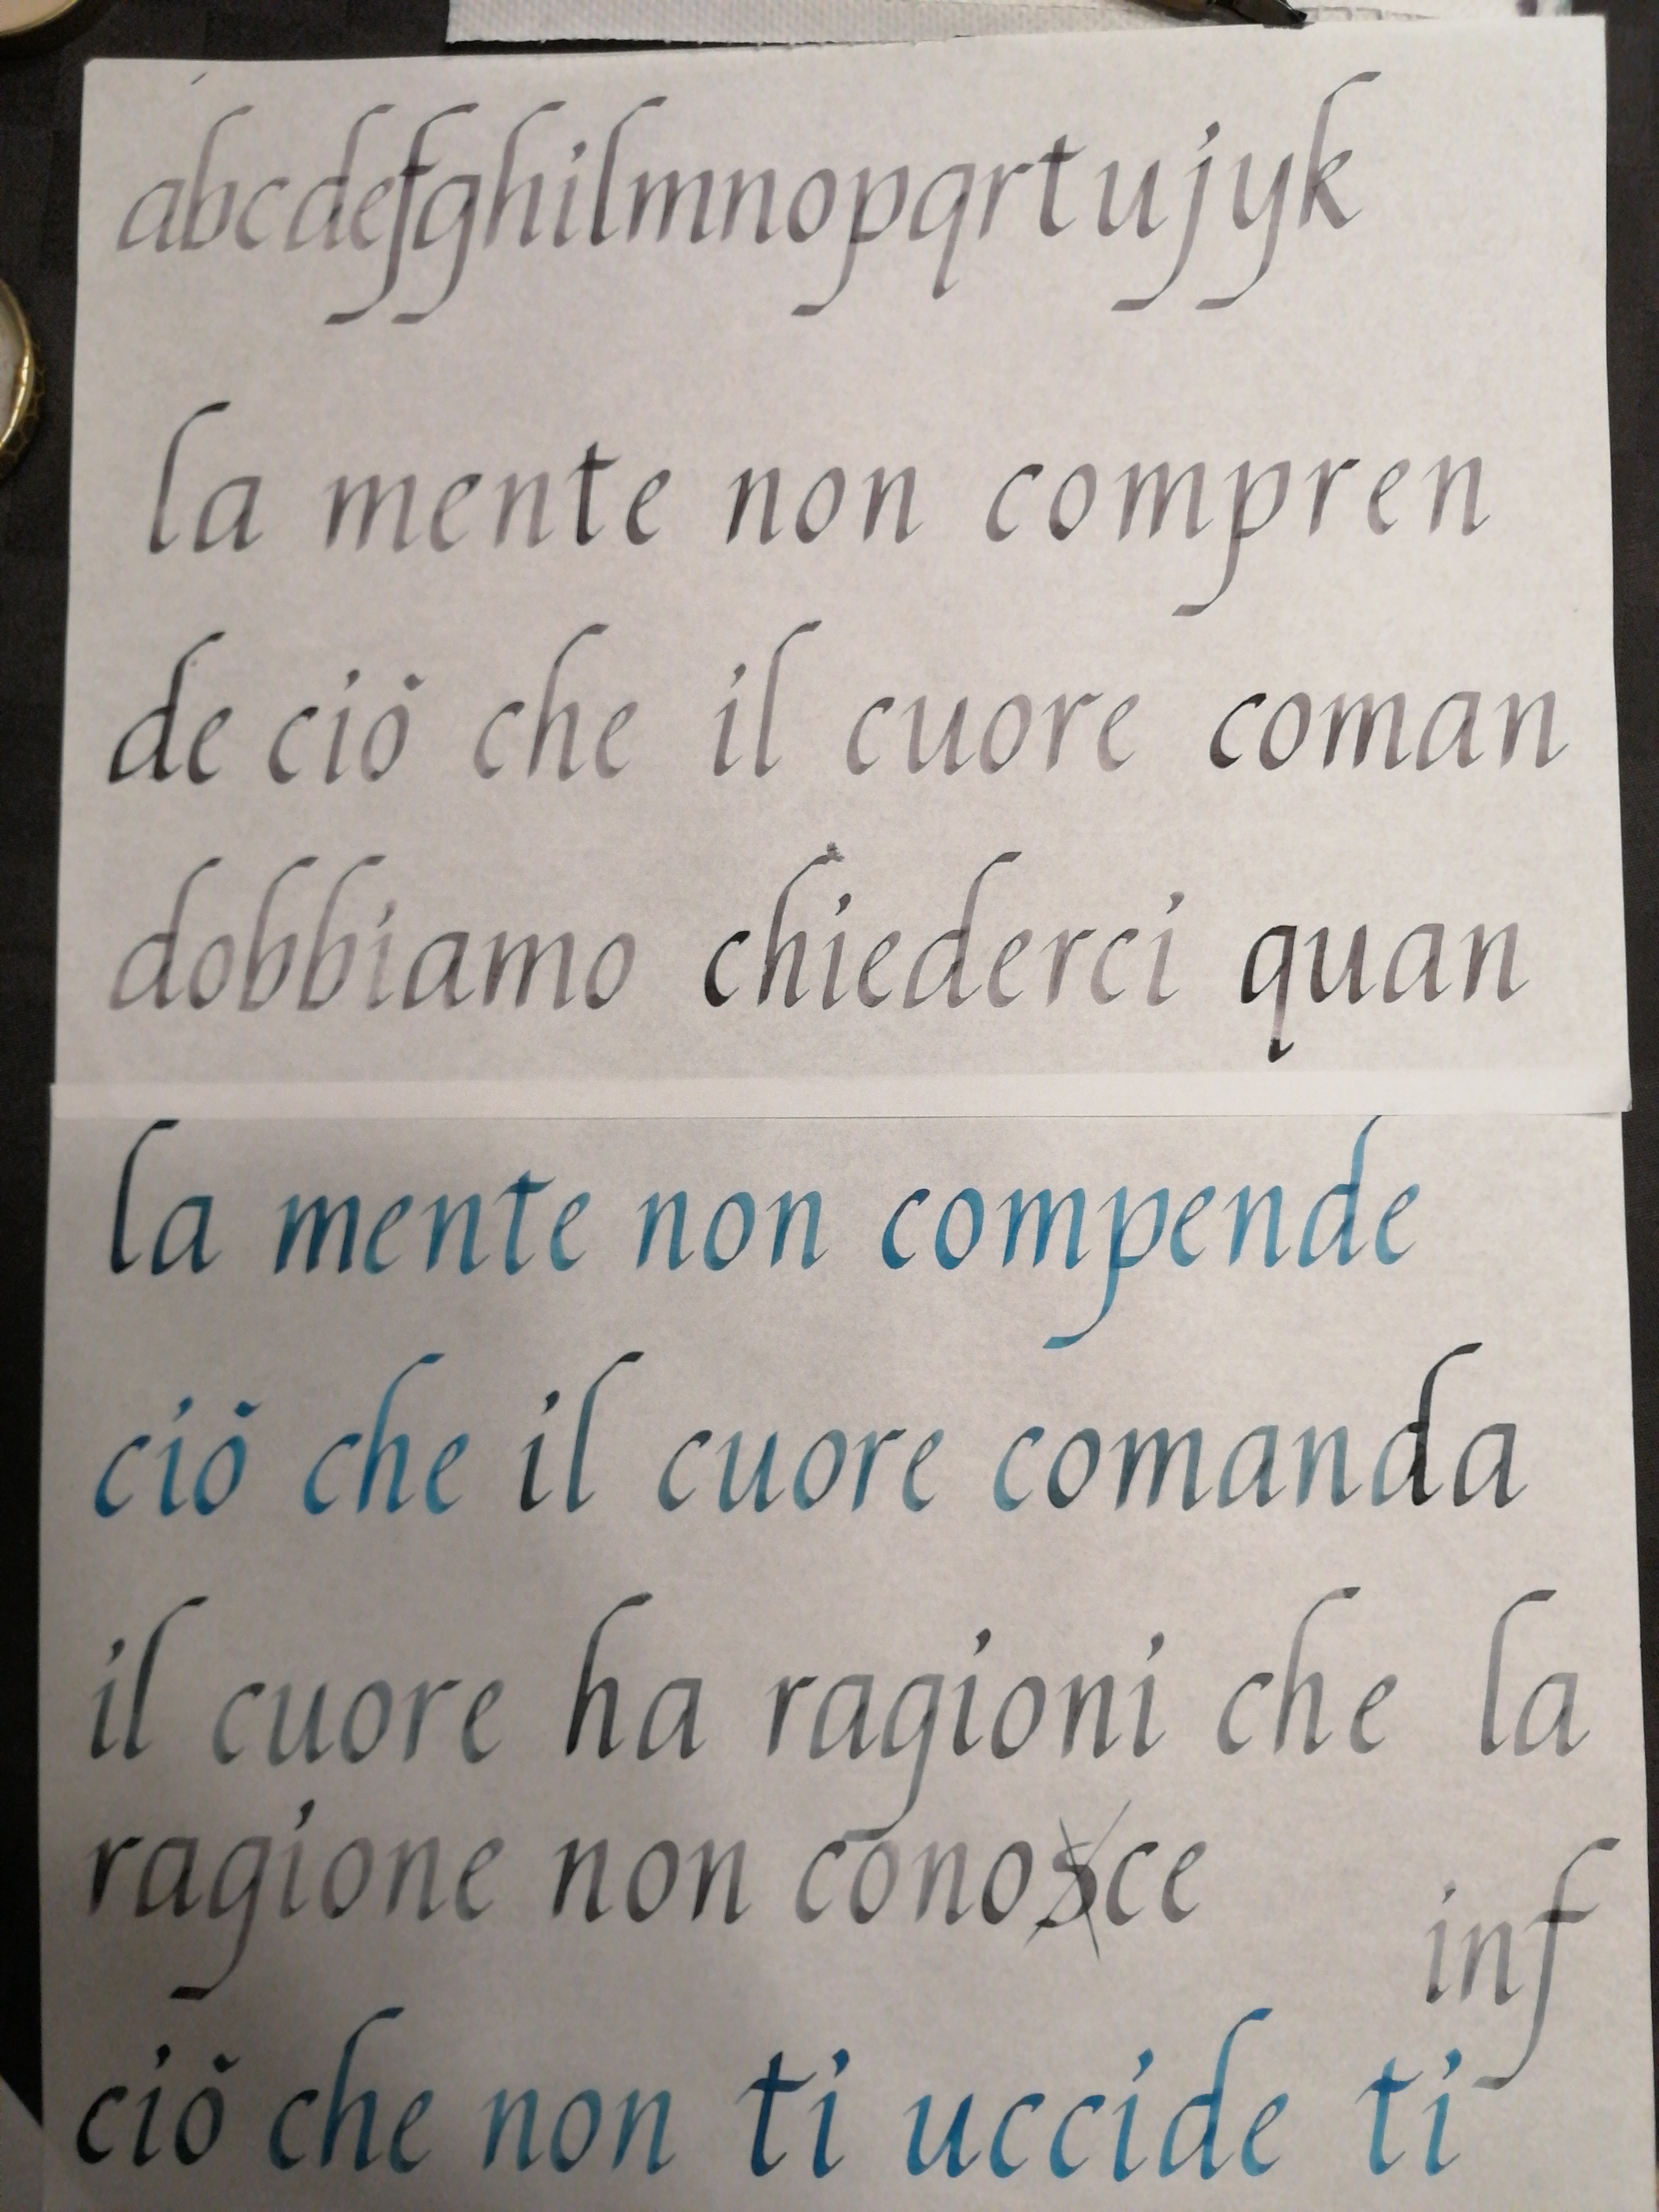 abcdefghilmnopqrtujyk
la mente non compren
de ciò che il cuore coman
dobbiamo chiederci quan
la mente non compende
ciò che il cuore comanda
il cuore ha ragioni che la
ragione non conosce
inf
ciò che non ti uccide ti